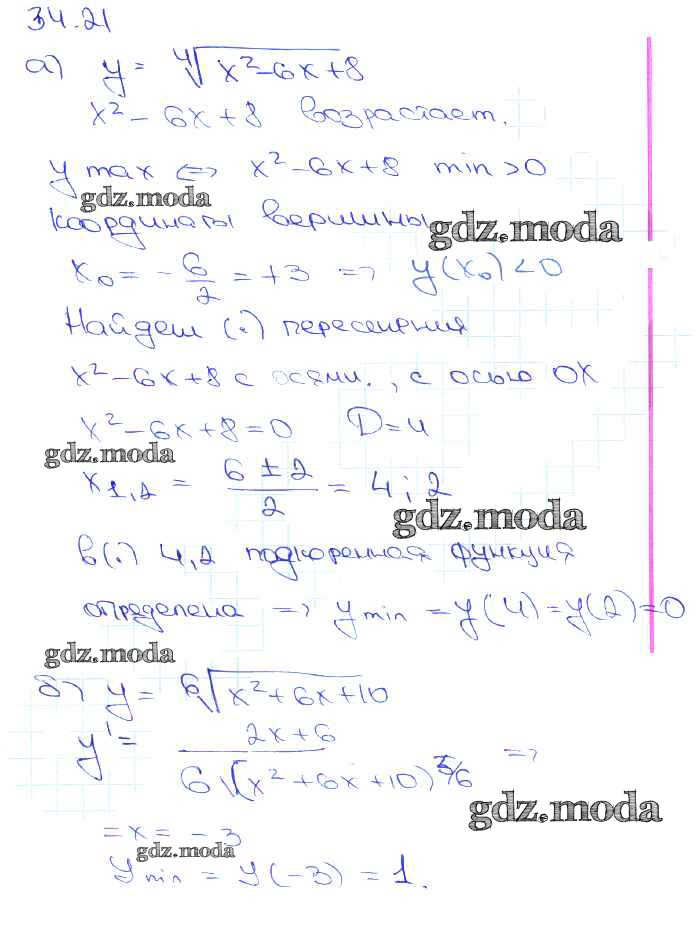 34.21
а) y = ⁴√x²-6x+8
x² - 6x + 8 возрастает.
y max ⇔ x²-6x+8 min >0
gdz.moda
координаты вершины
gdz.moda
x₀ = - 6/2 = +3 => y(x₀) < 0
Найдем (·) пересечения
x²-6x+8 с осями., с осью OX
x²-6x+8=0 D=4
gdz.moda
x₁,₂ = (6 ± 2)/2 = 4; 2
gdz.moda
в (·) 4,2 подкоренная функция
определена => y min = y(4) = y(2) = 0
gdz.moda
б) y = ⁶√x²+6x+10
y' = (2x+6)/(6\(x²+6x+10)^5/6) =>
gdz.moda
= x = - 3
gdz.moda
y min = y(-3) = 1.